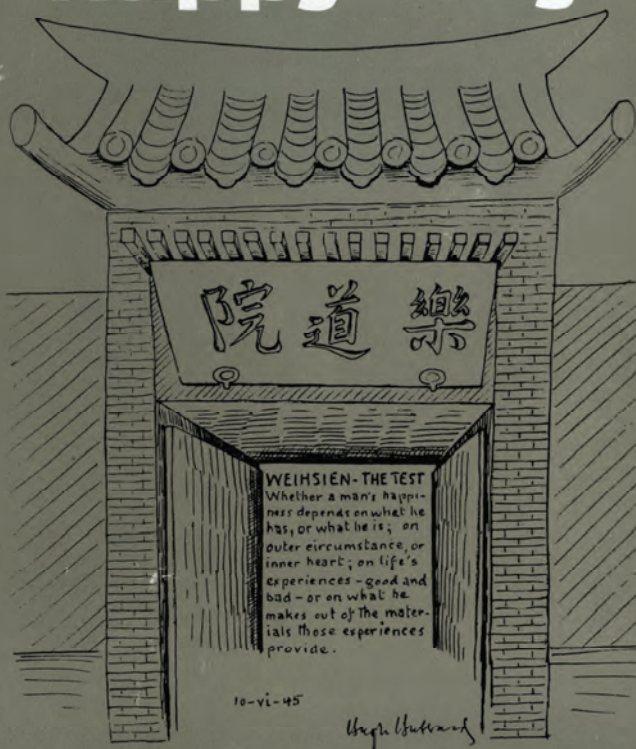 Happy Way
樂道院
WEIHSIEN - THE TEST
Whether a man's happi-
ness depends on what he
has, or what he is; on
outer circumstance, or
inner heart; on life's
experiences - good and
bad - or on what he
makes out of the mater-
ials those experiences
provide.
10-vi-45
Hugh Hubbard